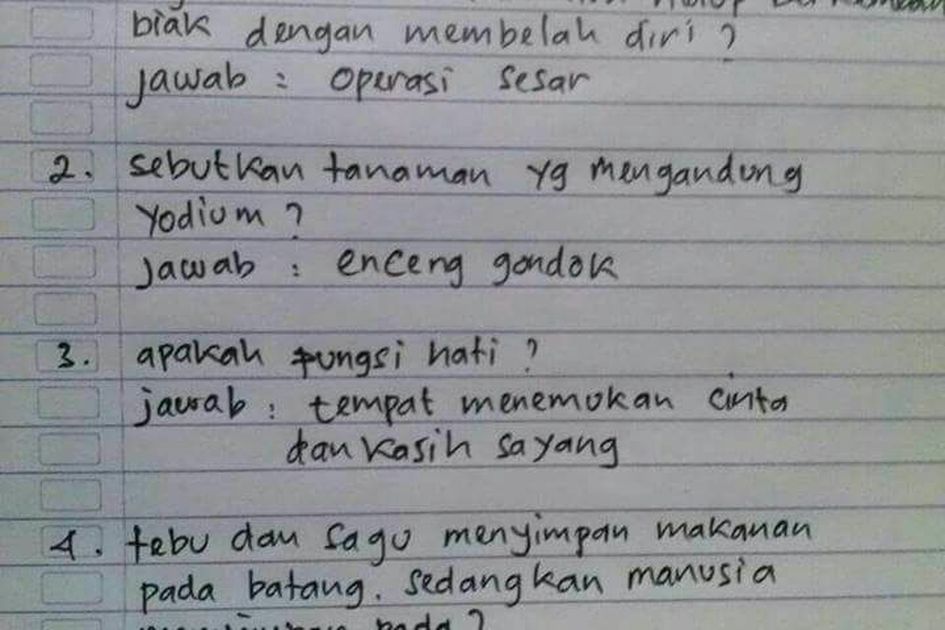 biak dengan membelah diri ?
jawab : operasi sesar
2. sebutkan tanaman yg mengandung
yodium ?
jawab : enceng gondok
3. apakah fungsi hati ?
jawab : tempat menemukan cinta
dan kasih sayang
4. tebu dan sagu menyimpan makanan
pada batang. sedangkan manusia
pada ?